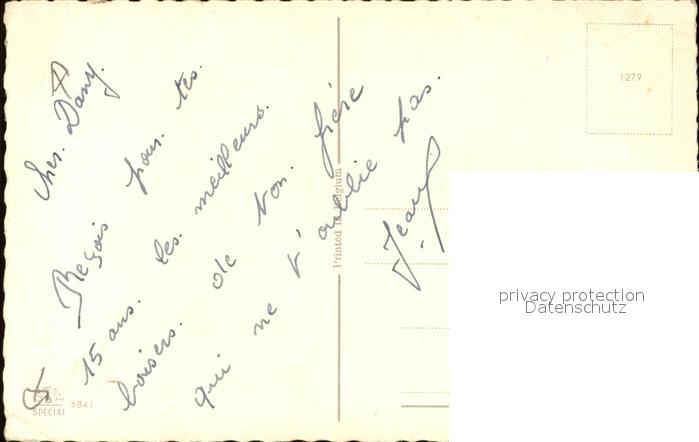 Cher. Dany.
Reçois pour. tes.
15 ans. les. meilleurs.
baisers. de ton. frère
qui ne t'oublie pas.
Jean
Printed in Belgium
1279
SPÉCIAL
6841
privacy protection
Datenschutz